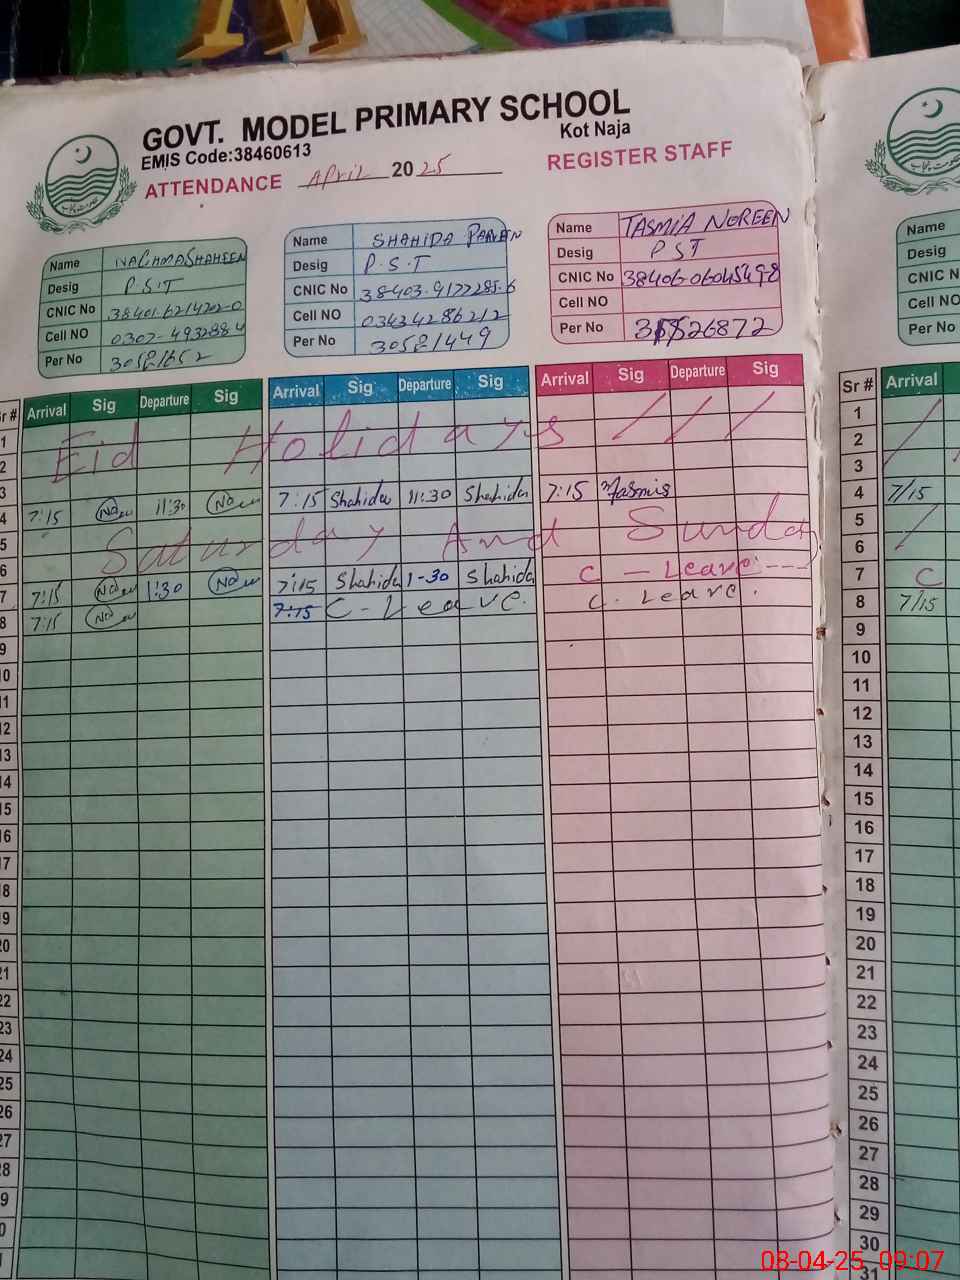 GOVT. MODEL PRIMARY SCHOOL
Kot Naja
EMIS Code:38460613
ATTENDANCE April 2025 REGISTER STAFF
Name NAGHMA SHAHEEN
Desig P.S.T
CNIC No
Cell NO
Per No
Name SHAHIDA PARVEEN
Desig P.S.T
CNIC No 38403-9177285-6
Cell NO 03434286212
Per No
Name TASMIA NOREEN
Desig PST
CNIC No 38406-0604549-8
Cell NO
Per No
Name
Desig
CNIC N
Cell NO
Per No
Sr # Arrival Sig Departure Sig Arrival Sig Departure Sig Arrival Sig Departure Sig Sr # Arrival
1 Eid Holidays / / / 1 /
2 2
3 3
4 7:15 11:30 7:15 Shahida 11:30 Shahida 7:15 Tasmia 4 7/15
5 Saturday And Sunday 5 /
6 6
7 7:15 1:30 7:15 Shahida 1-30 Shahida C - Leave 7 C
8 7:15 7:15 C-Leave. C. Leave. 8 7/15
9 9
10 10
11 11
12 12
13 13
14 14
15 15
16 16
17 17
18 18
19 19
20 20
21 21
22 22
23 23
24 24
25 25
26 26
27 27
28 28
29 29
30 30
31 31
08-04-25 09:07